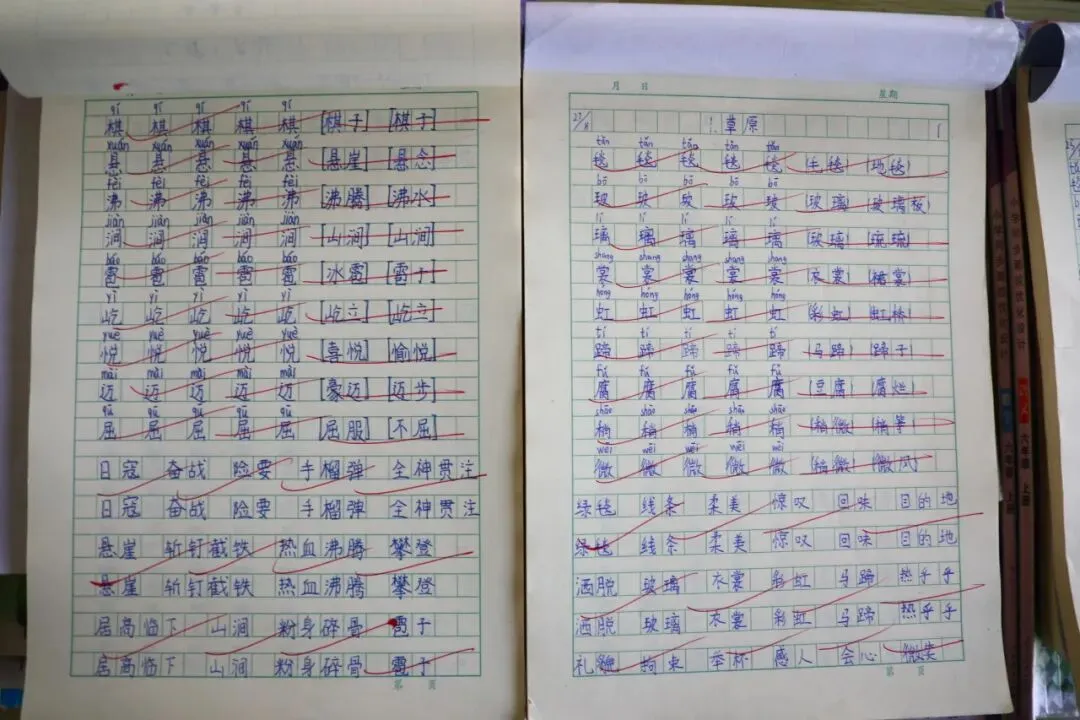 qí qí qí qí qí
棋 棋 棋 棋 棋 [棋子] [棋子]
xuán xuán xuán xuán xuán
悬 悬 悬 悬 悬 [悬崖] [悬念]
fèi fèi fèi fèi fèi
沸 沸 沸 沸 沸 [沸腾] [沸水]
jiàn jiàn jiàn jiàn jiàn
涧 涧 涧 涧 涧 [山涧] [山涧]
báo báo báo báo báo
雹 雹 雹 雹 雹 [冰雹] [雹子]
yì yì yì yì yì
屹 屹 屹 屹 屹 [屹立] [屹立]
yuè yuè yuè yuè yuè
悦 悦 悦 悦 悦 [喜悦] [愉悦]
mài mài mài mài mài
迈 迈 迈 迈 迈 [豪迈] [迈步]
qū qū qū qū qū
屈 屈 屈 屈 屈 [屈服] [不屈]
日寇 奋战 险要 手榴弹 全神贯注
日寇 奋战 险要 手榴弹 全神贯注
悬崖 斩钉截铁 热血沸腾 攀登
悬崖 斩钉截铁 热血沸腾 攀登
居高临下 山涧 粉身碎骨 雹子
居高临下 山涧 粉身碎骨 雹子
第 页
月 日 星期
1.草原
tǎn tǎn tǎn tǎn tǎn
毯 毯 毯 毯 毯 (毛毯) (地毯)
bō bō bō bō bō
玻 玻 玻 玻 玻 (玻璃) (玻璃板)
lí lí lí lí lí
璃 璃 璃 璃 璃 (玻璃) (琉璃)
shang shang shang shang shang
裳 裳 裳 裳 裳 (衣裳) (裙裳)
hóng hóng hóng hóng hóng
虹 虹 虹 虹 虹 (彩虹) (虹桥)
tí tí tí tí tí
蹄 蹄 蹄 蹄 蹄 (马蹄) (蹄子)
fǔ fǔ fǔ fǔ fǔ
腐 腐 腐 腐 腐 (豆腐) (腐烂)
shāo shāo shāo shāo shāo
稍 稍 稍 稍 稍 (稍微) (稍等)
wēi wēi wēi wēi wēi
微 微 微 微 微 (稍微) (微风)
绿毯 线条 柔美 惊叹 回味 目的地
绿毯 线条 柔美 惊叹 回味 目的地
洒脱 玻璃 衣裳 彩虹 马蹄 热乎乎
洒脱 玻璃 衣裳 彩虹 马蹄 热乎乎
礼貌 拘束 举杯 感人 会心 微笑
第 页
六年级 上册
六年级 上册